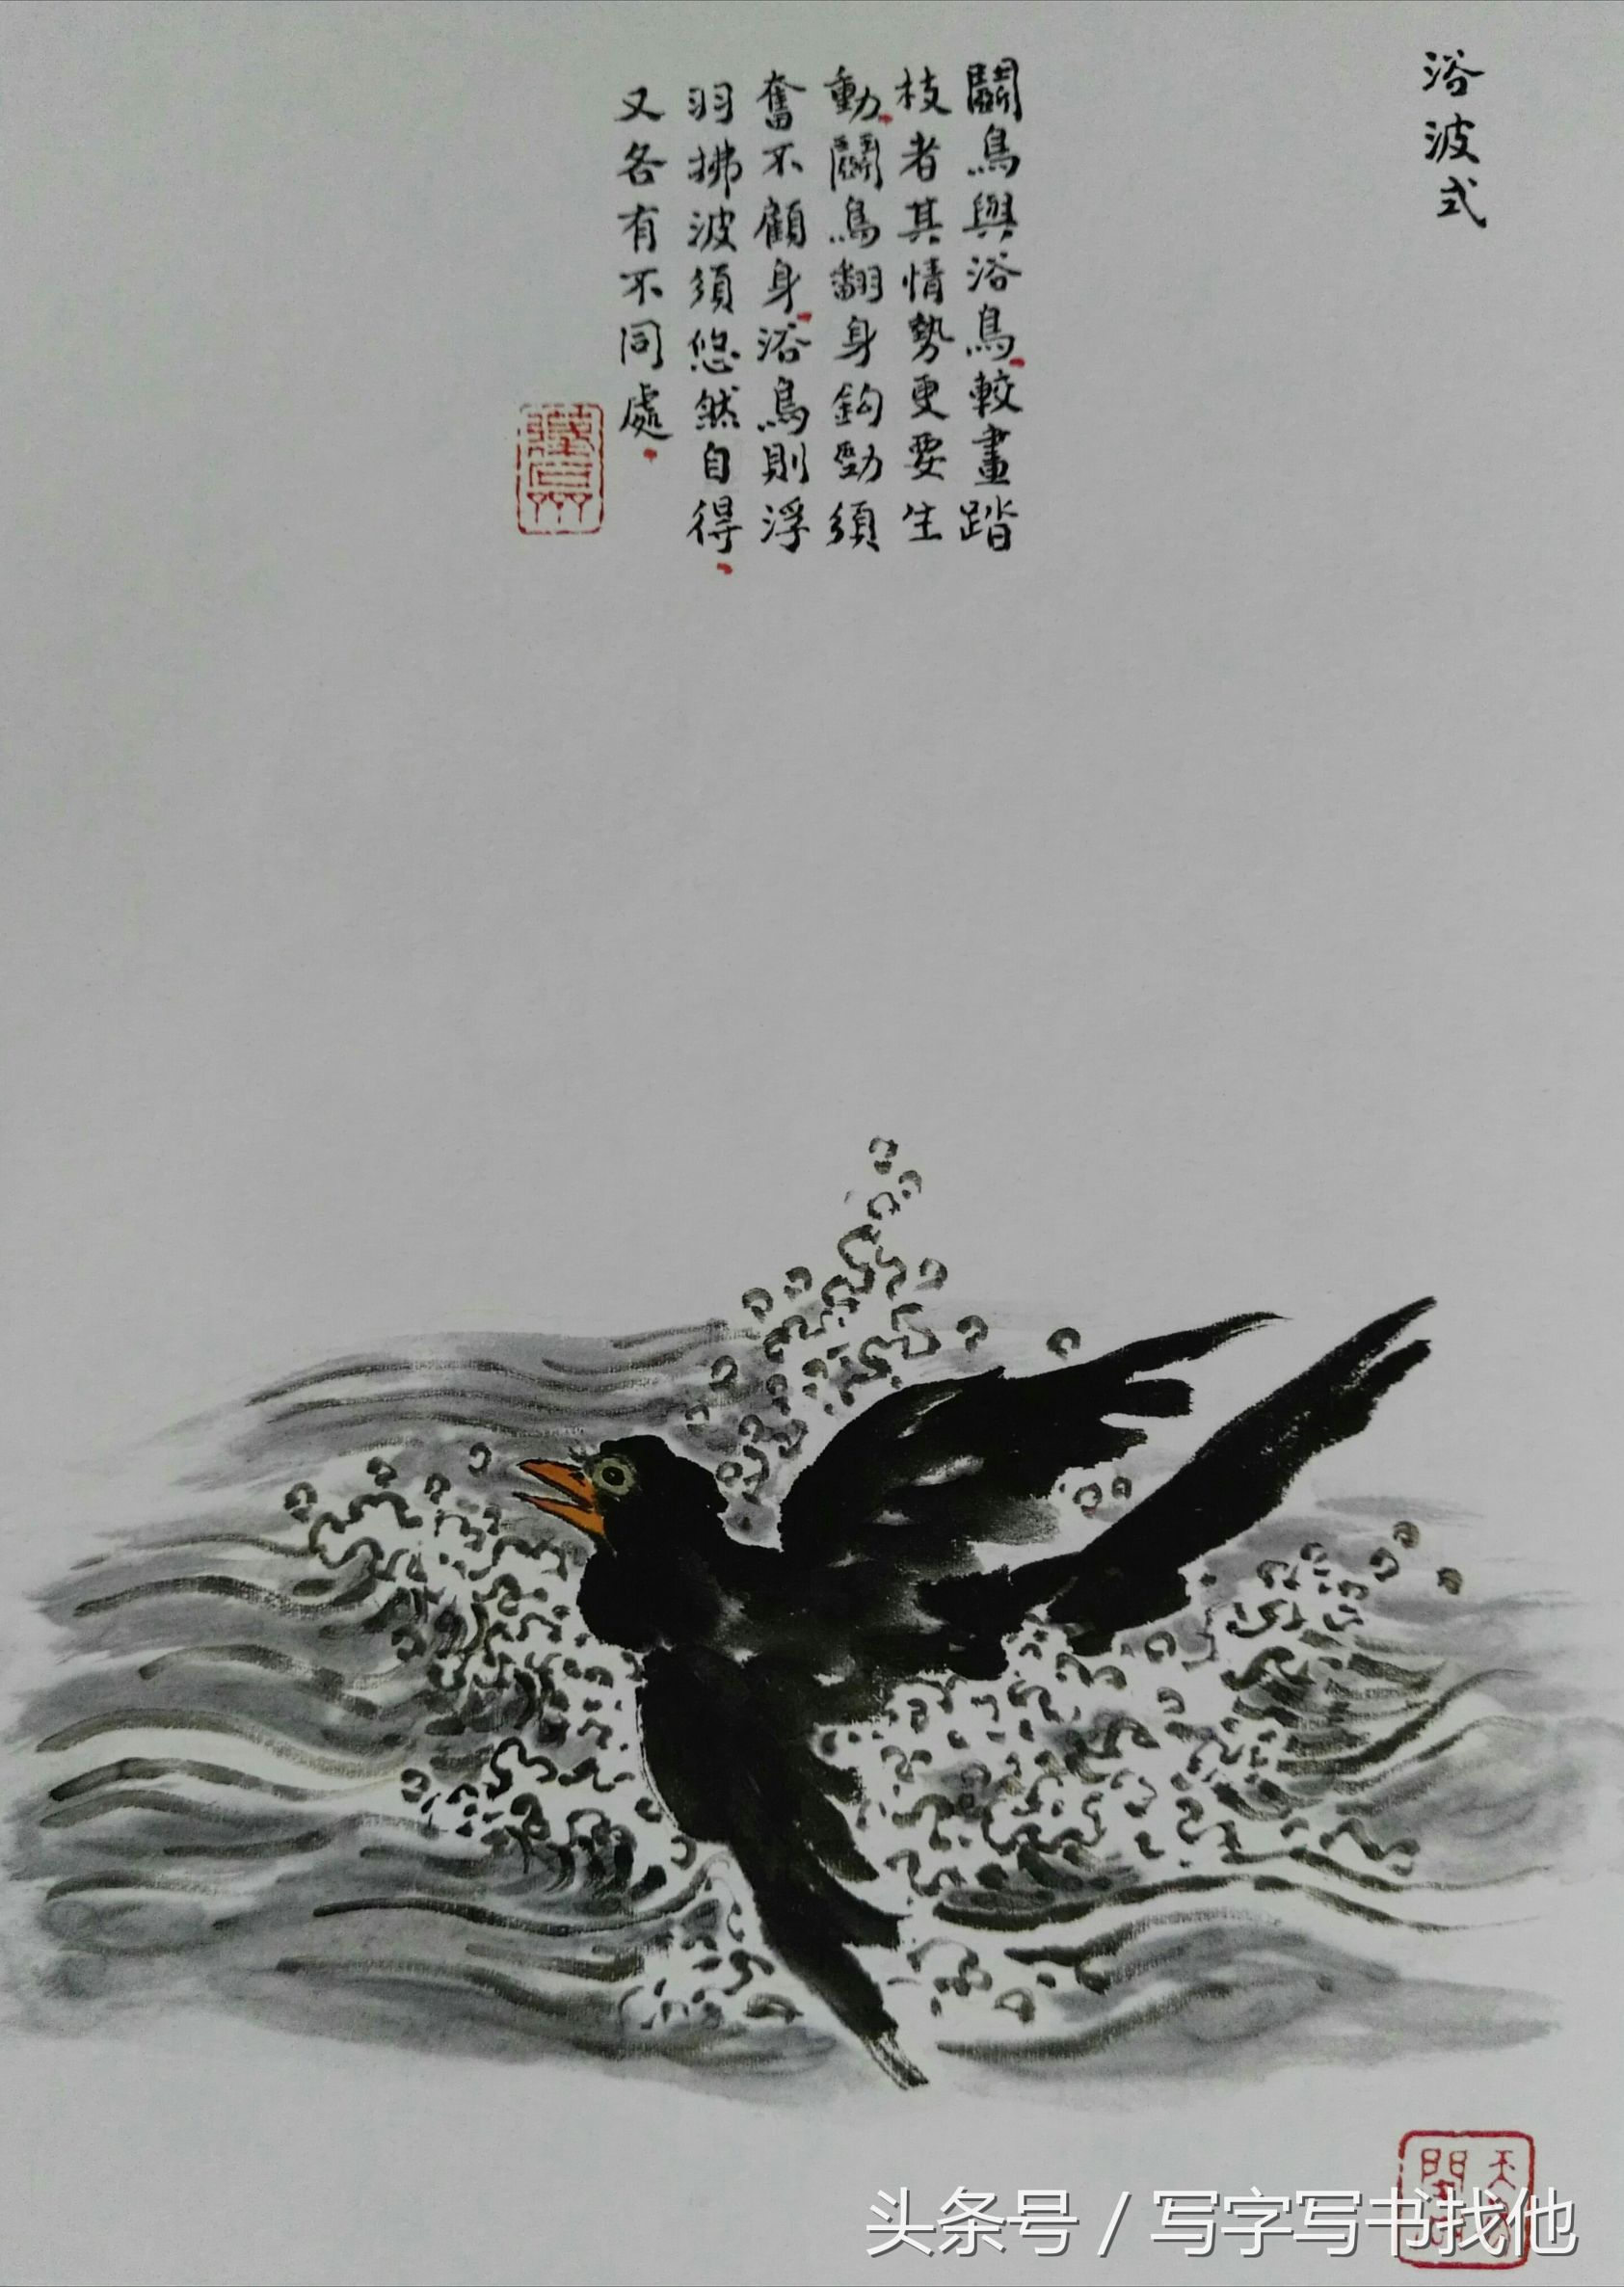 浴波式
鬭鳥與浴鳥較畫踏
枝者其情勢更要生
動鬭鳥翻身鉤勁須
奮不顧身浴鳥則浮
羽拂波須悠然自得
又各有不同處
头条号 / 写字写书找他